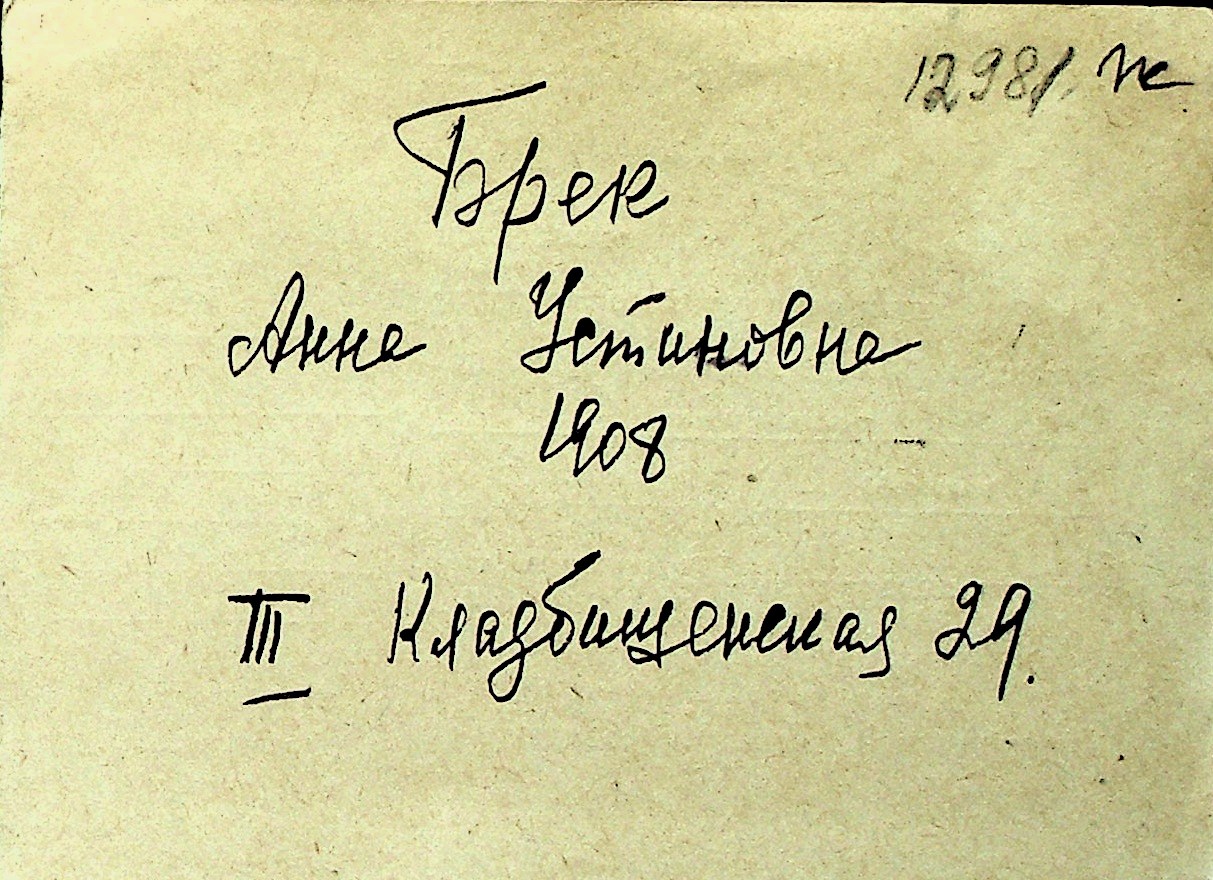 12981. ж
Брек
Анна Устиновна
1908
III Кладбищенская 29.